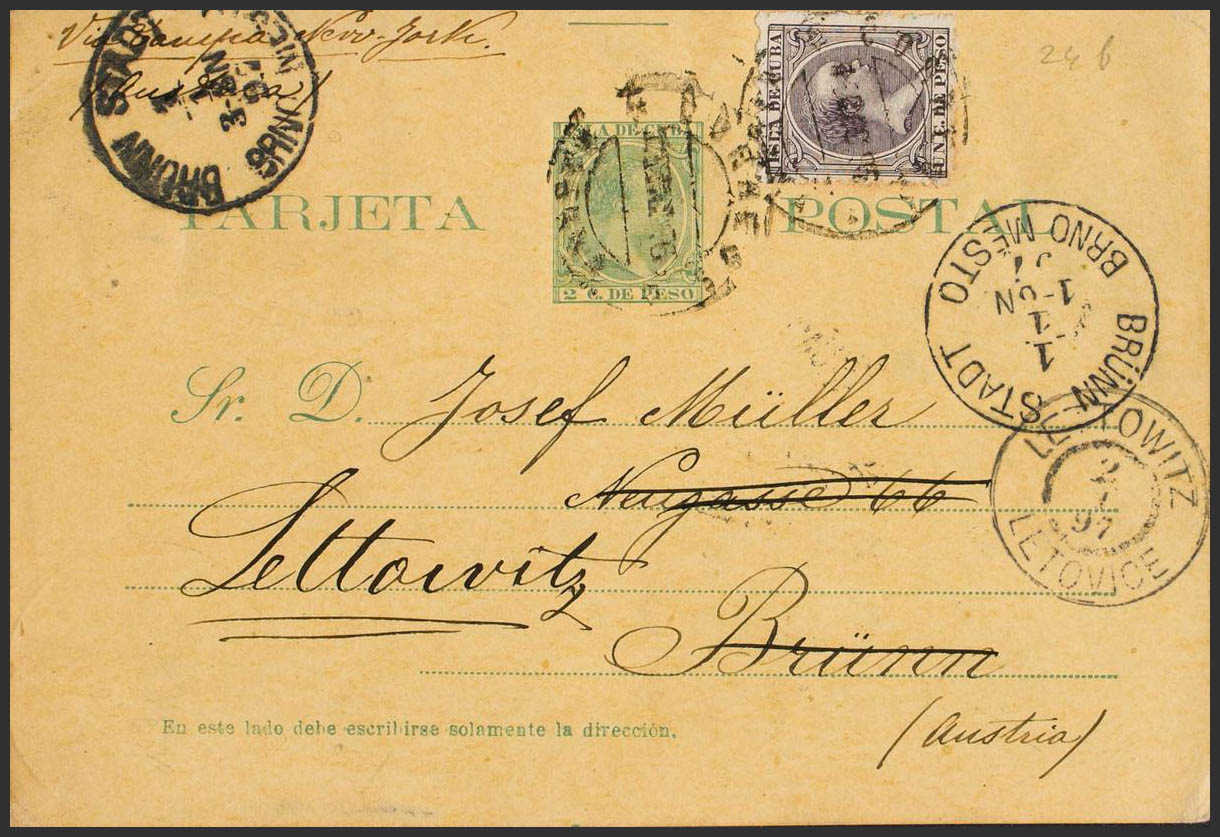 Via Tampa New-York.
(Austria)
24 b
ISLA DE CUBA
UN C. DE PESO
ISLA DE CUBA
2 C. DE PESO
BRÜNN STADT
TARJETA POSTAL
BRNO MĚSTO
BRÜNN STADT
Sr. D. Josef Müller
Neugasse 66
Lettowitz
Brünn
(Austria)
LETTOWITZ
2
97
LETOVICE
En este lado debe escribirse solamente la dirección.